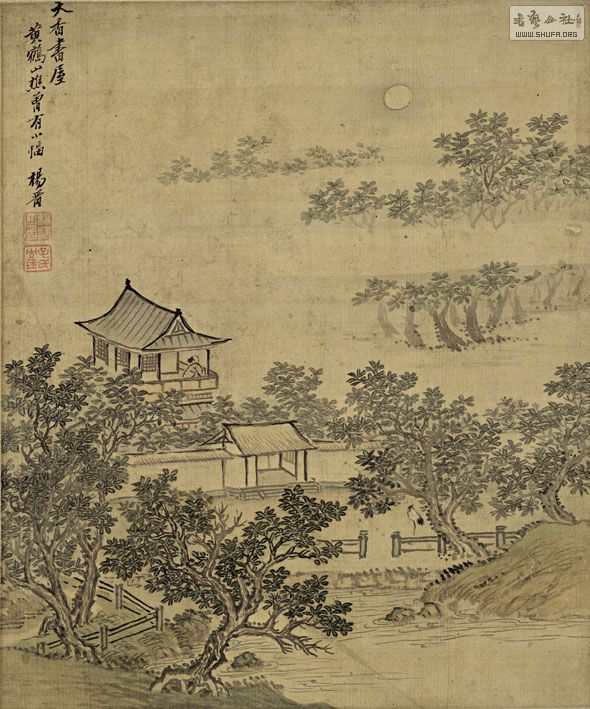 天香書屋
黃鶴山樵曾有小幅 楊晉
書藝公社
WWW.SHUFA.ORG